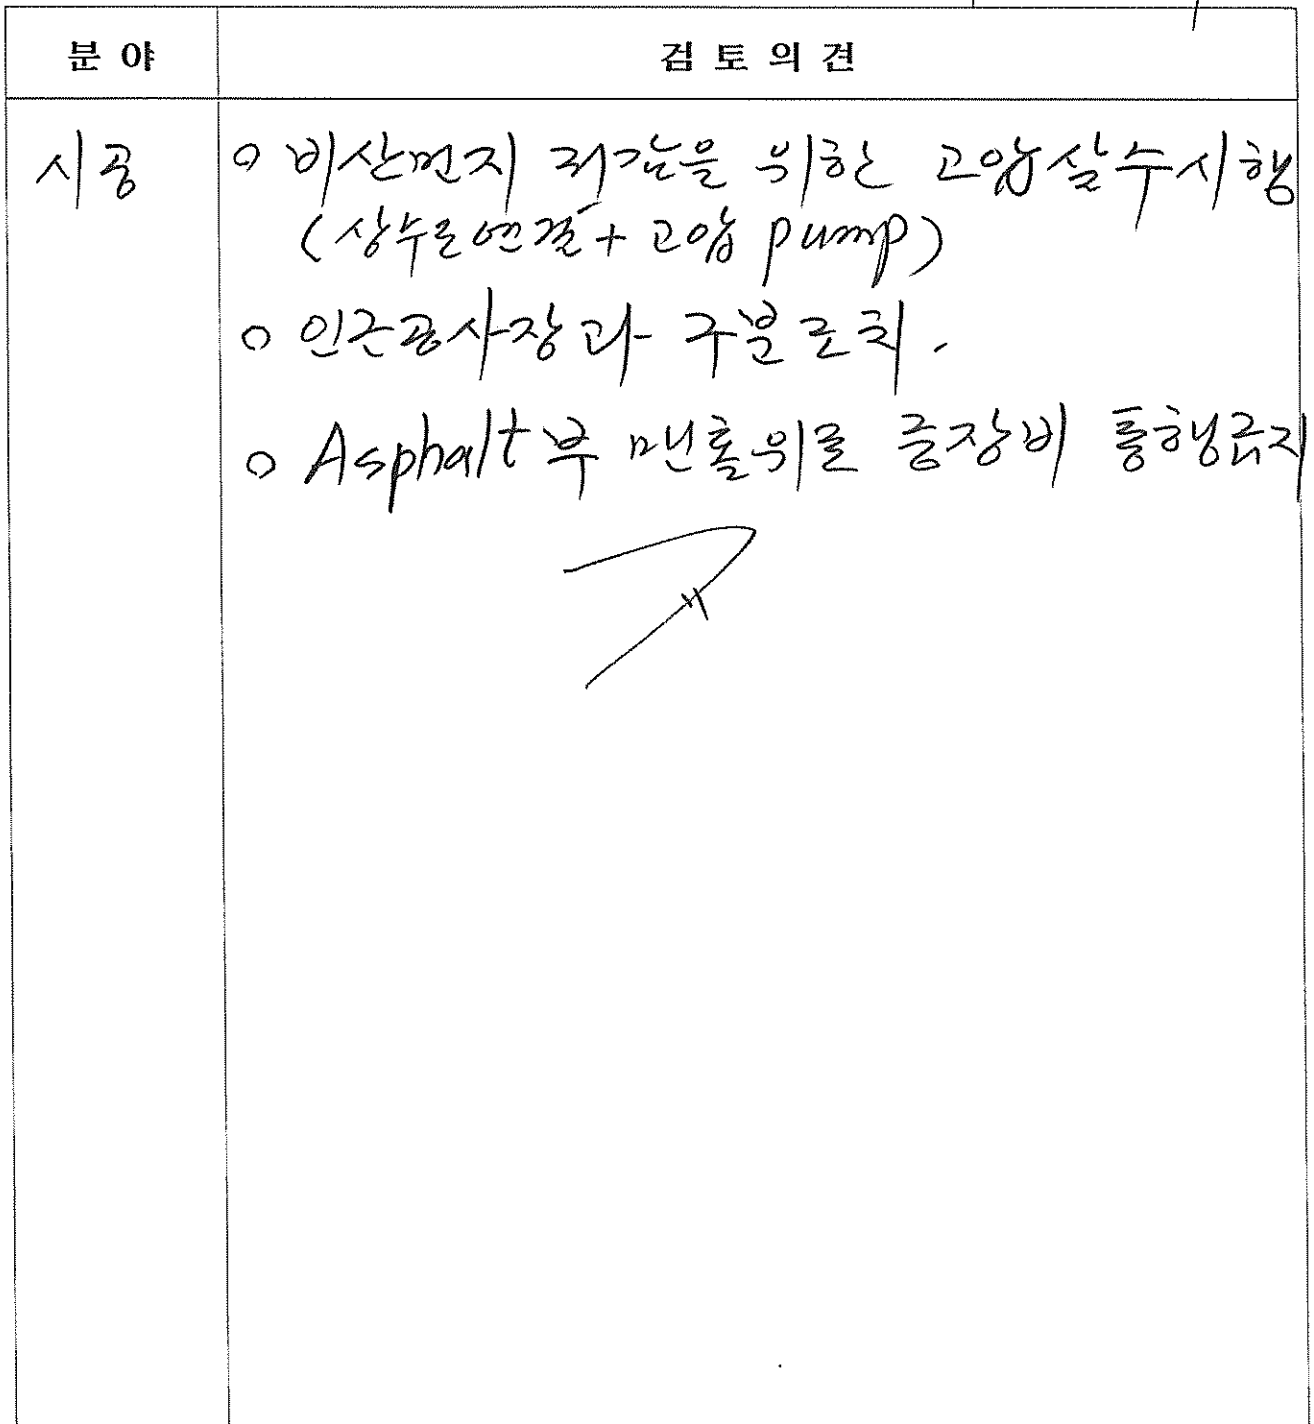 분 야 검 토 의 견
시공 o 비산먼지 저감을 위한 고압살수시행
(상수로연결 + 고압 pump)
o 인근공사장과 구분조치.
o Asphalt부 맨홀위로 중장비 통행금지